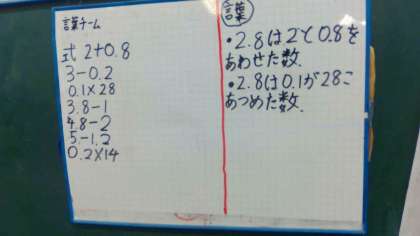 言葉チーム
式 2+0.8
3-0.2
0.1×28
3.8-1
4.8-2
5-1.2
0.2×14
言葉
・2.8は2と0.8を
あわせた数.
・2.8は0.1が28こ
あつめた数.